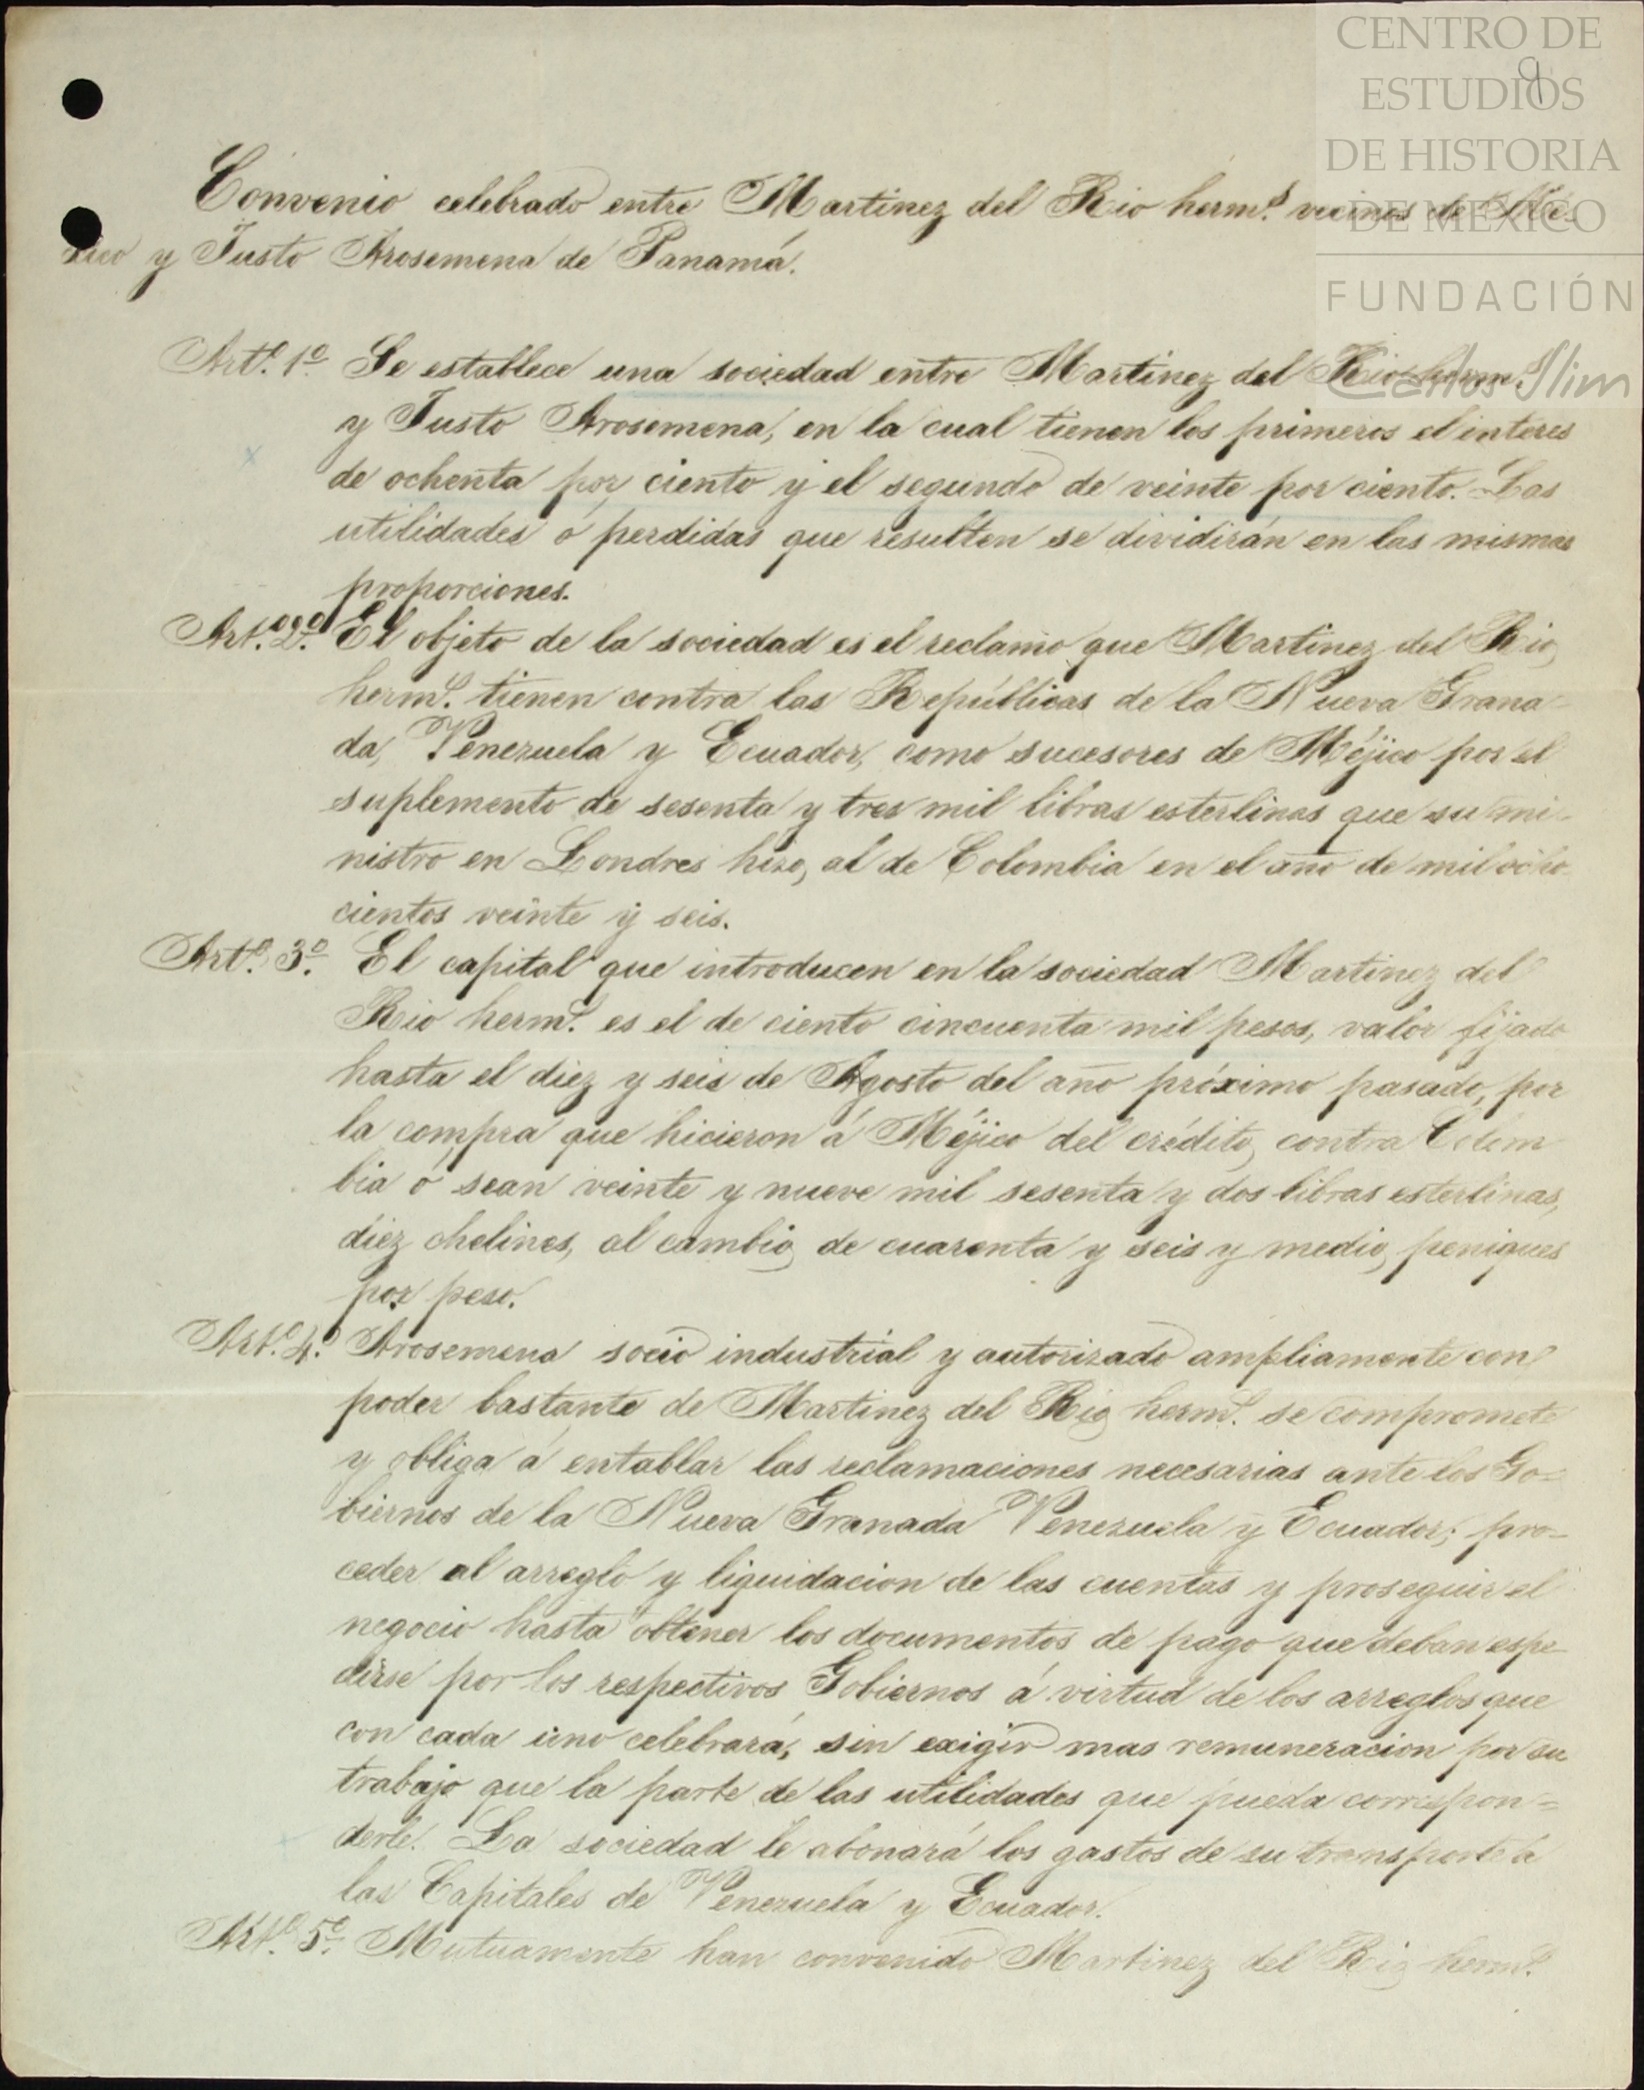 CENTRO DE
ESTUDIOS
DE HISTORIA
DE MÉXICO
FUNDACIÓN
Carlos Slim
9
Convenio celebrado entre Martinez del Rio herm.s vecinos de Mé-
xico y Justo Arosemena de Panamá.
Art.o 1o Se establece una sociedad entre Martinez del Rio herm.s
y Justo Arosemena, en la cual tienen los primeros el interes
de ochenta por ciento y el segundo de veinte por ciento. Las
utilidades ó perdidas que resulten se dividirán en las mismas
proporciones.
Art.o 2o. El objeto de la sociedad es el reclamo que Martinez del Rio
herm.s tienen contra las Repúblicas de la Nueva Grana-
da, Venezuela y Ecuador, como sucesores de Méjico por el
suplemento de sesenta y tres mil libras esterlinas que su mi-
nistro en Londres hizo, al de Colombia en el año de mil ocho
cientos veinte y seis.
Art.o 3o. El capital que introducen en la sociedad Martinez del
Rio herm.s es el de ciento cincuenta mil pesos, valor fijado
hasta el diez y seis de Agosto del año próximo pasado, por
la compra que hicieron á Méjico del crédito, contra Colom
bia ó sean veinte y nueve mil sesenta y dos libras esterlinas,
diez chelines, al cambio de cuarenta y seis y medio peniques
por peso.
Art.o 4o. Arosemena socio industrial y autorizado ampliamente con
poder bastante de Martinez del Rio herm.s se compromete
y obliga á entablar las reclamaciones necesarias ante los Go-
biernos de la Nueva Granada Venezuela y Ecuador; pro-
ceder al arreglo y liquidacion de las cuentas y proseguir el
negocio hasta obtener los documentos de pago que deban espe-
dirse por los respectivos Gobiernos á virtud de los arreglos que
con cada uno celebrará, sin exigir mas remuneracion por su
trabajo que la parte de las utilidades que pueda correspon-
derle. La sociedad le abonará los gastos de su transporte á
las Capitales de Venezuela y Ecuador.
Art.o 5o. Mutuamente han convenido Martinez del Rio herm.s